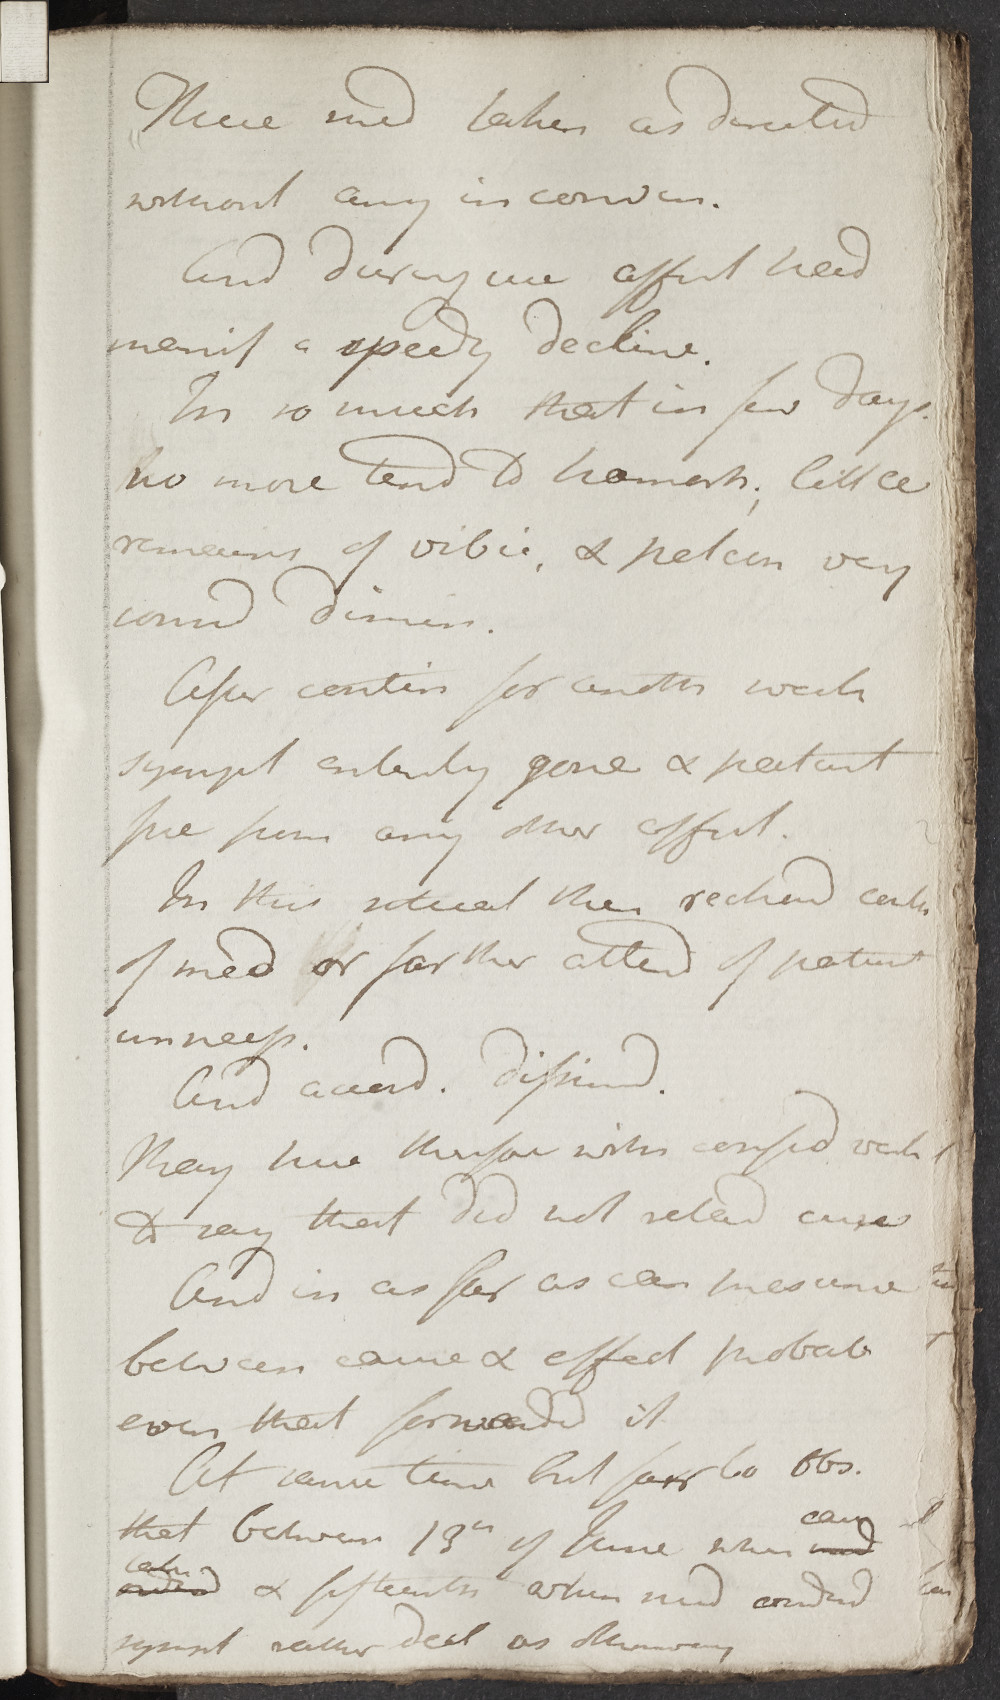 These med taken as directed
without any in conven.
And during use affect head
manif a speedy decline.
In so much that in few days.
no more tend to hemorh; little
remains of vibic, & petech very
consid dimin.
After contin for anoth week
sympt entirely gone & patient
free from any other affect.
In this situat then reckond
of med or farther attend of patient
unnecess.
And accord. dismissd.
They here therefore with confid
to say that did not retard cure
And in as far as can presume
between cause & effect probab
even that forwarded it
At same time but fair to obs.
that between 13th of June when med
& fifteenth when med
sympt rather decl as otherways